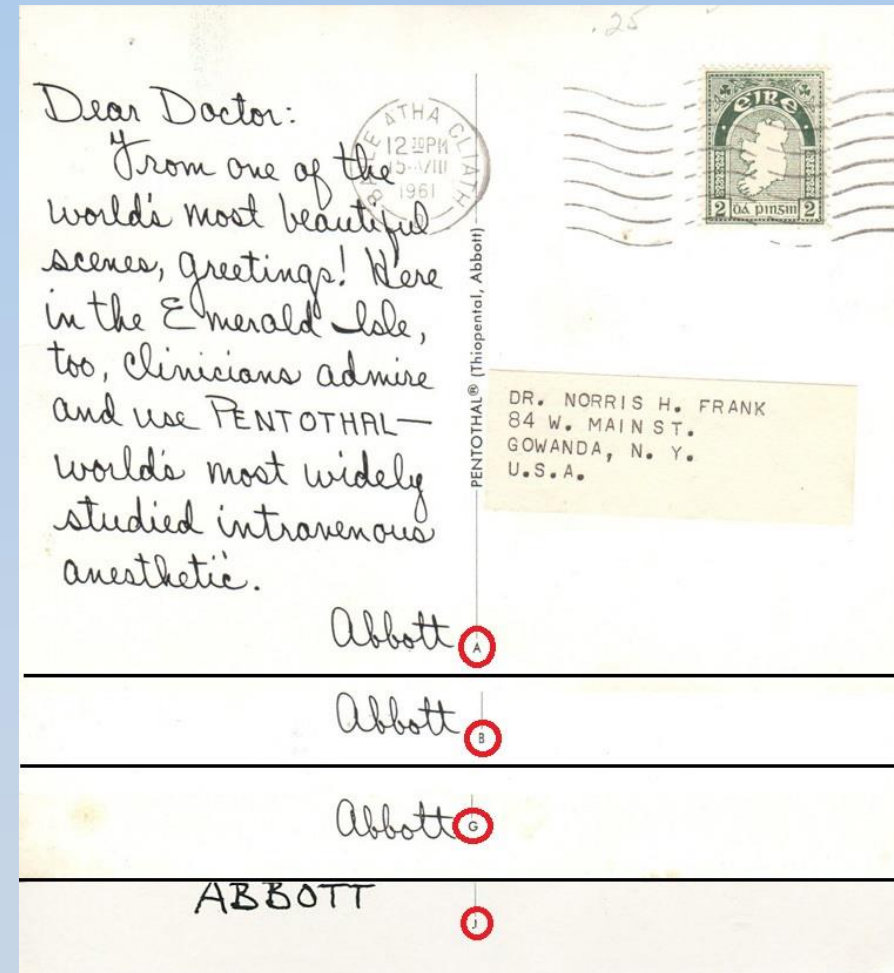 .25
Dear Doctor:
From one of the
world's most beautiful
scenes, greetings! Here
in the Emerald Isle,
too, clinicians admire
and use PENTOTHAL—
world's most widely
studied intravenous
anesthetic.
Abbott
BAILE ATHA CLIATH
12 30PM
15-VIII
1961
PENTOTHAL® (Thiopental, Abbott)
EIRE
2 dá pinsin 2
DR. NORRIS H. FRANK
84 W. MAIN ST.
GOWANDA, N. Y.
U.S.A.
A
Abbott
B
Abbott
G
ABBOTT
J